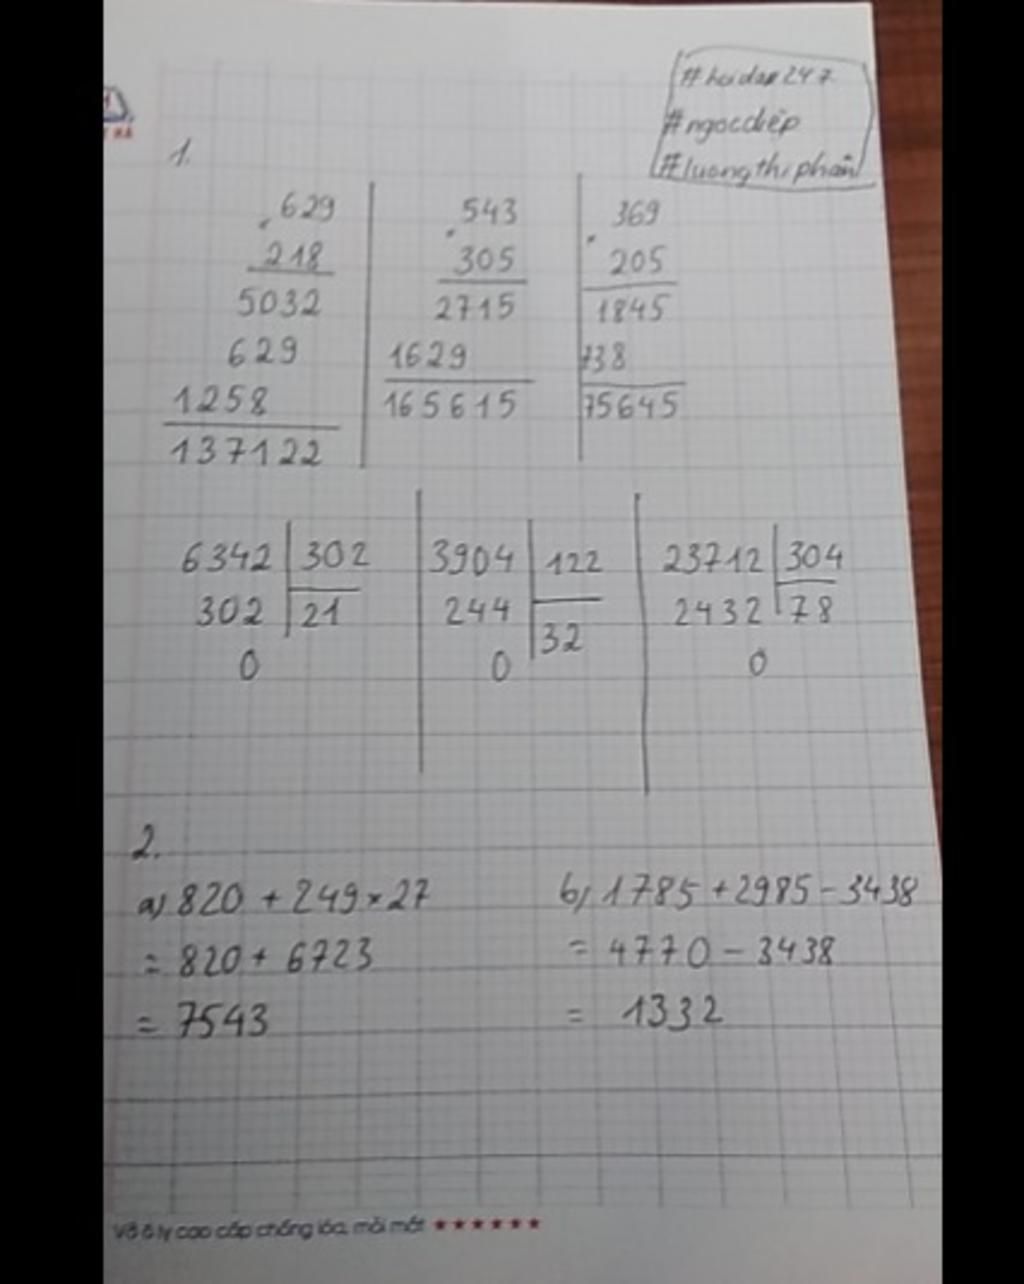 #hoidap247
#ngocdiệp
#luongthiphân
1.
629
218
5032
629
1258
137122
543
305
2715
1629
165615
369
205
1845
738
75645
6342 302
302 21
0
3904 122
244 32
0
23712 304
2432 78
0
2.
a) 820 + 249 × 27
= 820 + 6723
= 7543
b) 1785 + 2985 - 3438
= 4770 - 3438
= 1332
Vở ô ly cao cấp chống lóa, mỏi mắt ★★★★★★